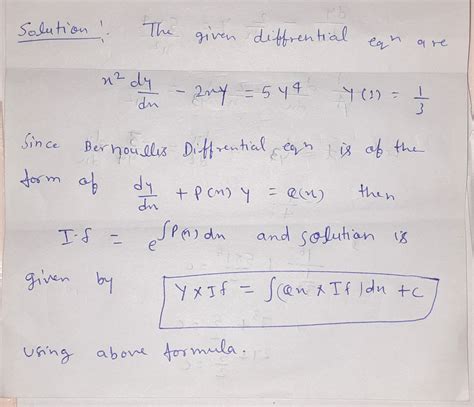 Solution :  The given diffrential eqn are
x² dy/dx - 2xy = 5y⁴   y(1) = 1/3
Since Bernoullis Diffrential eqn is of the
form of dy/dx + P(x) y = Q(x) then
I.f = e^∫P(x) dx and solution is
given by  y x If = ∫(Qx x If) dx + c
using above formula.